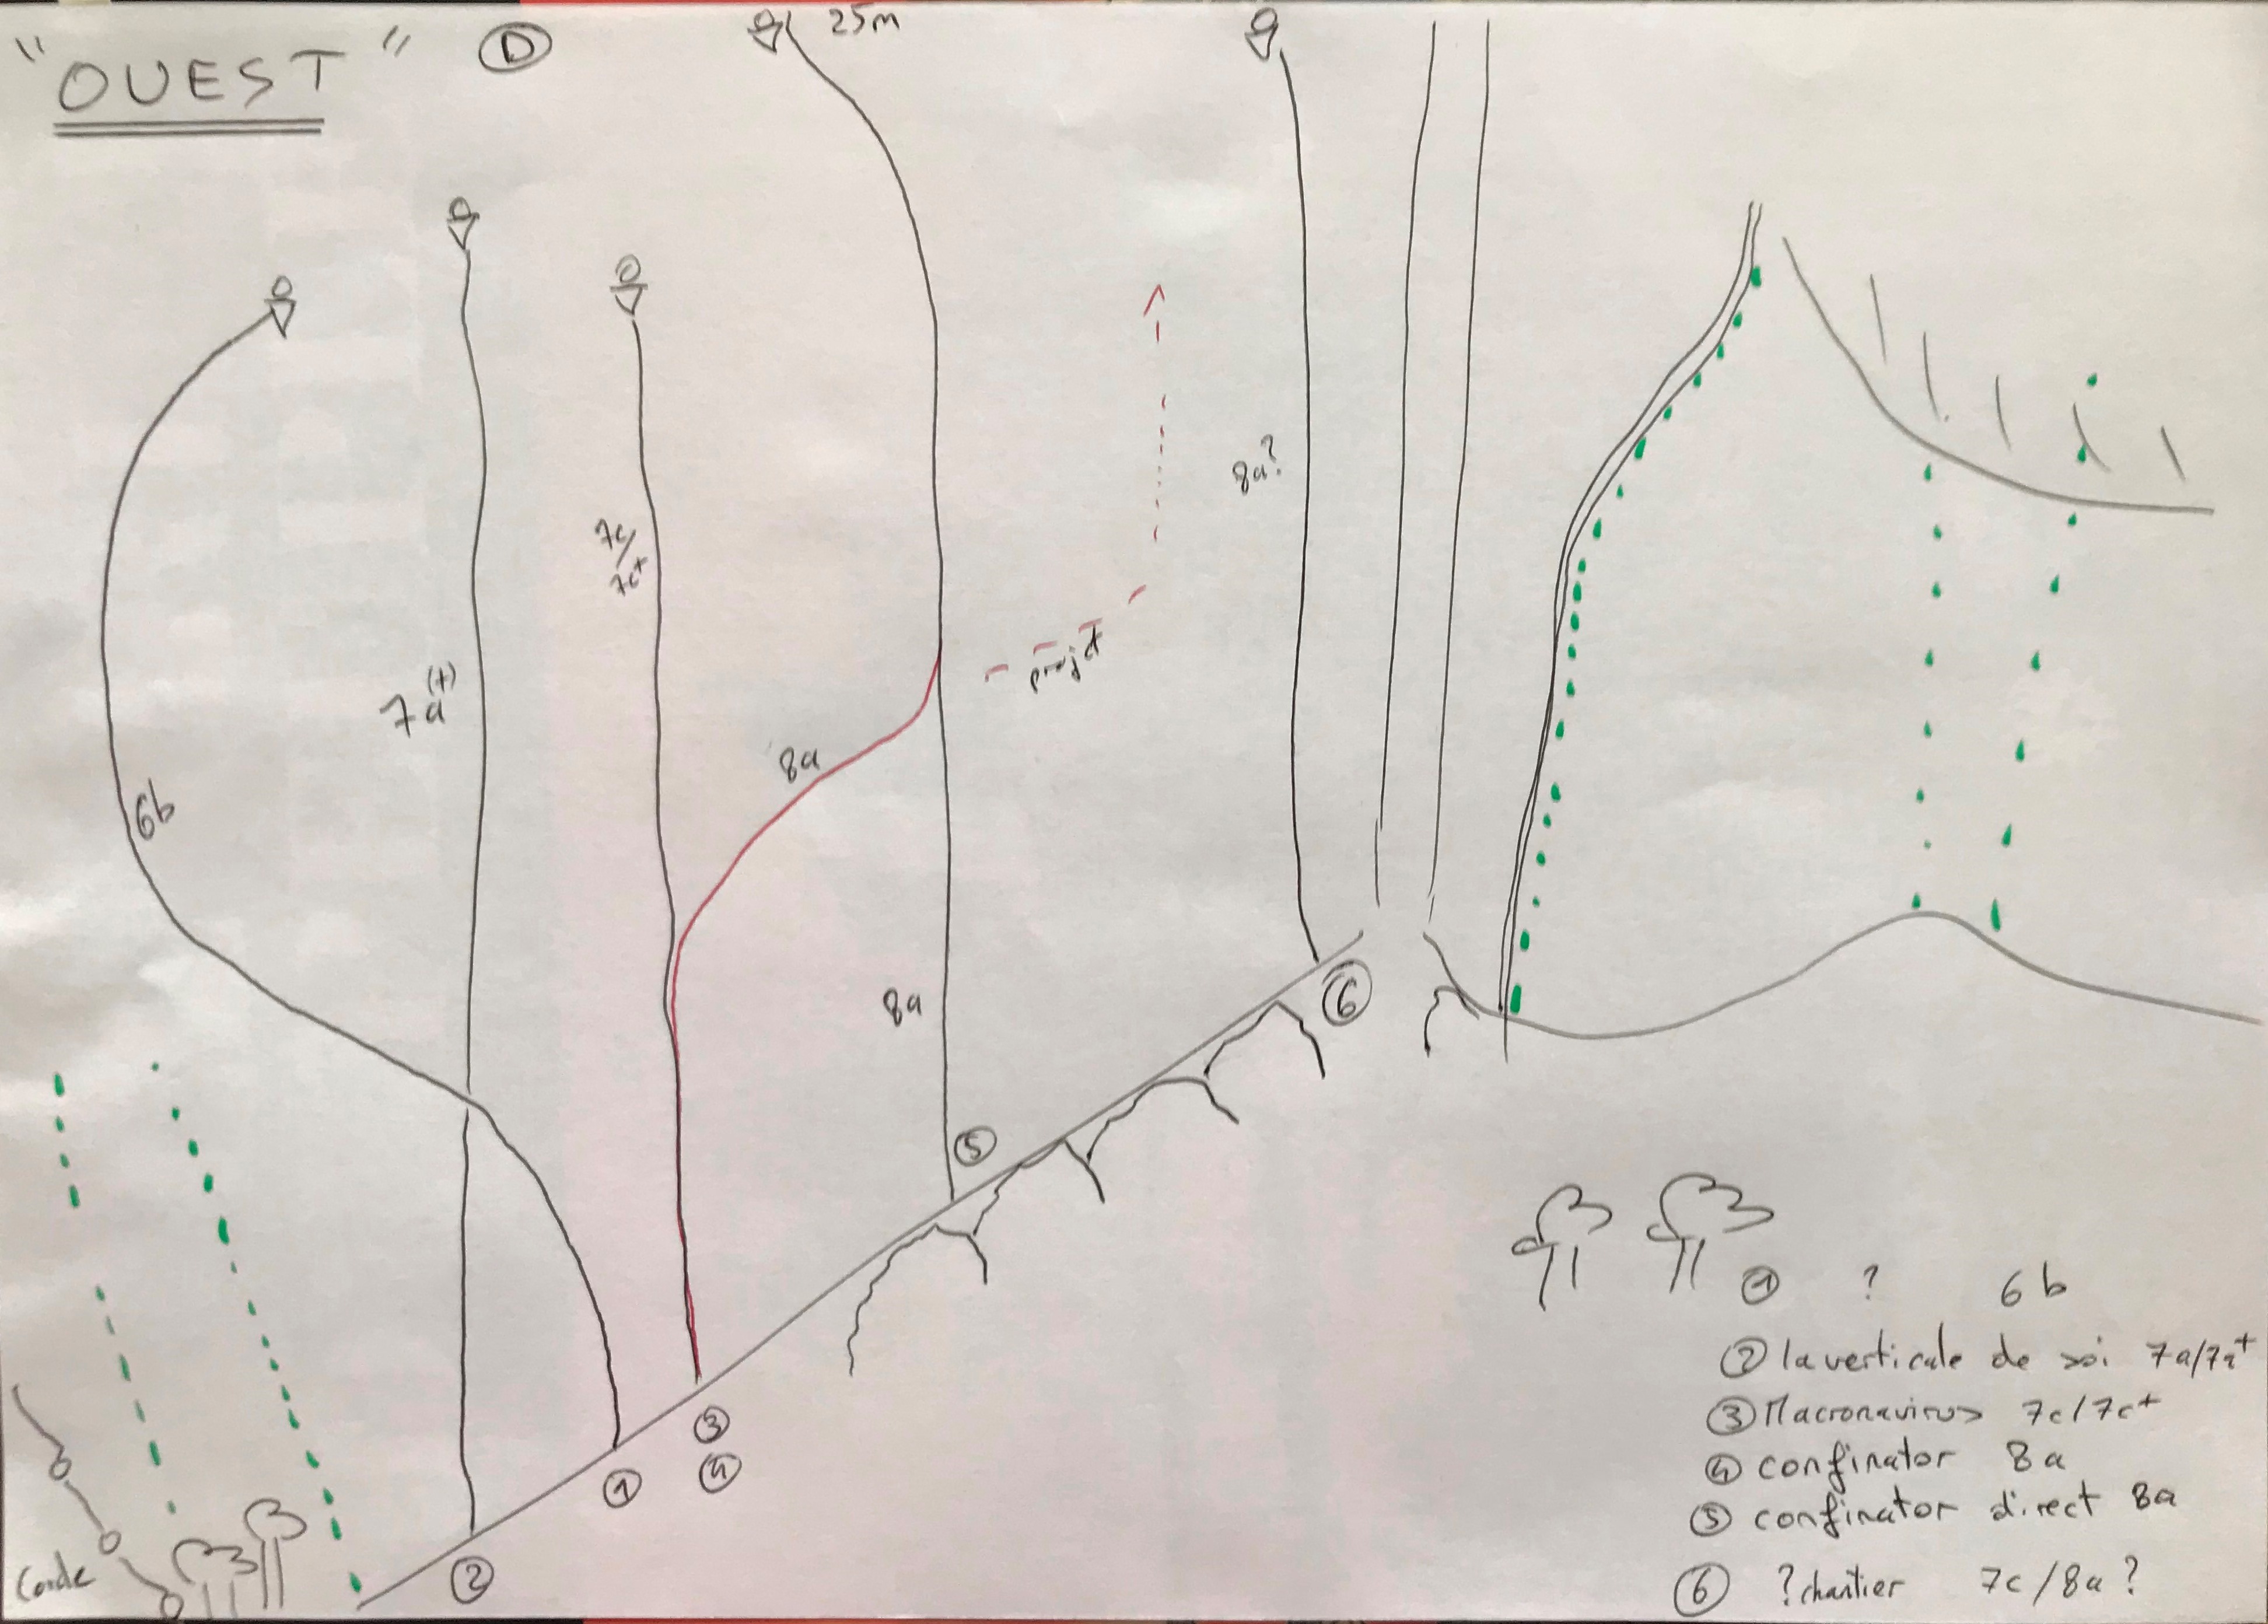 "OUEST" D
25m
8a?
7c/
7c+
7a(+)
projet
8a
6b
8a
5
6
3
4
1
2
Corde
1 ? 6b
2 la verticale de soi 7a/7a+
3 Macronavirus 7c/7c+
4 confinator 8a
5 confinator direct 8a
6 ? chantier 7c/8a ?